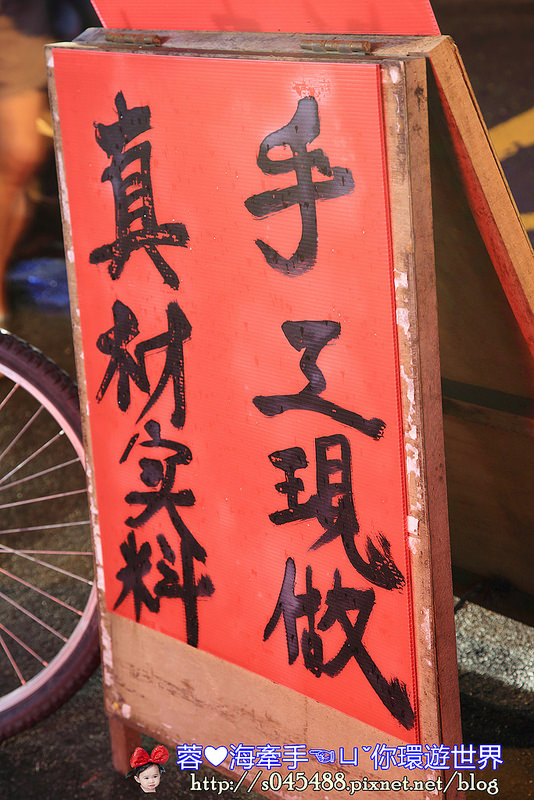 手工現做
真材實料
蓉♥海牽手☜ㄩˇ你環遊世界
http://s045488.pixnet.net/blog